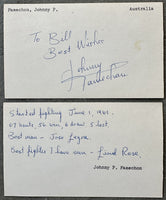 Famechon, Johnny P.    Australia
To Bill
Best Wishes
Johnny
Famechon
Started fighting June 1, 1961.
67 bouts, 56 wins, 6 draws, 5 lost.
Best man - Jose Legra.
Best fighter I have seen - Lionel Rose.
Johnny P. Famechon